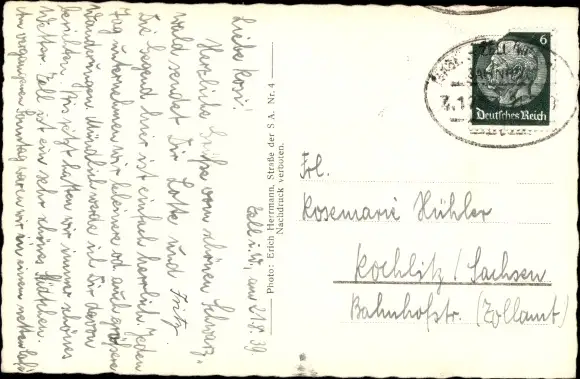 Zell i. W. am 21.8.39
Liebe Rosi!
Herzliche Grüße vom schönen Schwarz-
wald sendet Dir Lotte und Fritz.
Die Gegend hier ist einfach herrlich. Jeden
Tag unternehmen wir kleinere od. auch größere
Wanderungen. Mündlich werde ich Dir davon
berichten. Bis jetzt hatten wir immer schönes
Wetter. Zell ist ein sehr schönes Städtchen.
Am vergangenen Sonntag waren wir in einem netten
Photo: Erich Herrmann, Straße der S A. Nr. 4
Nachdruck verboten.
6
Deutsches Reich
Frl.
Rosemarie Hühler
Rochlitz / Sachsen
Bahnhofstr. (Zollamt)